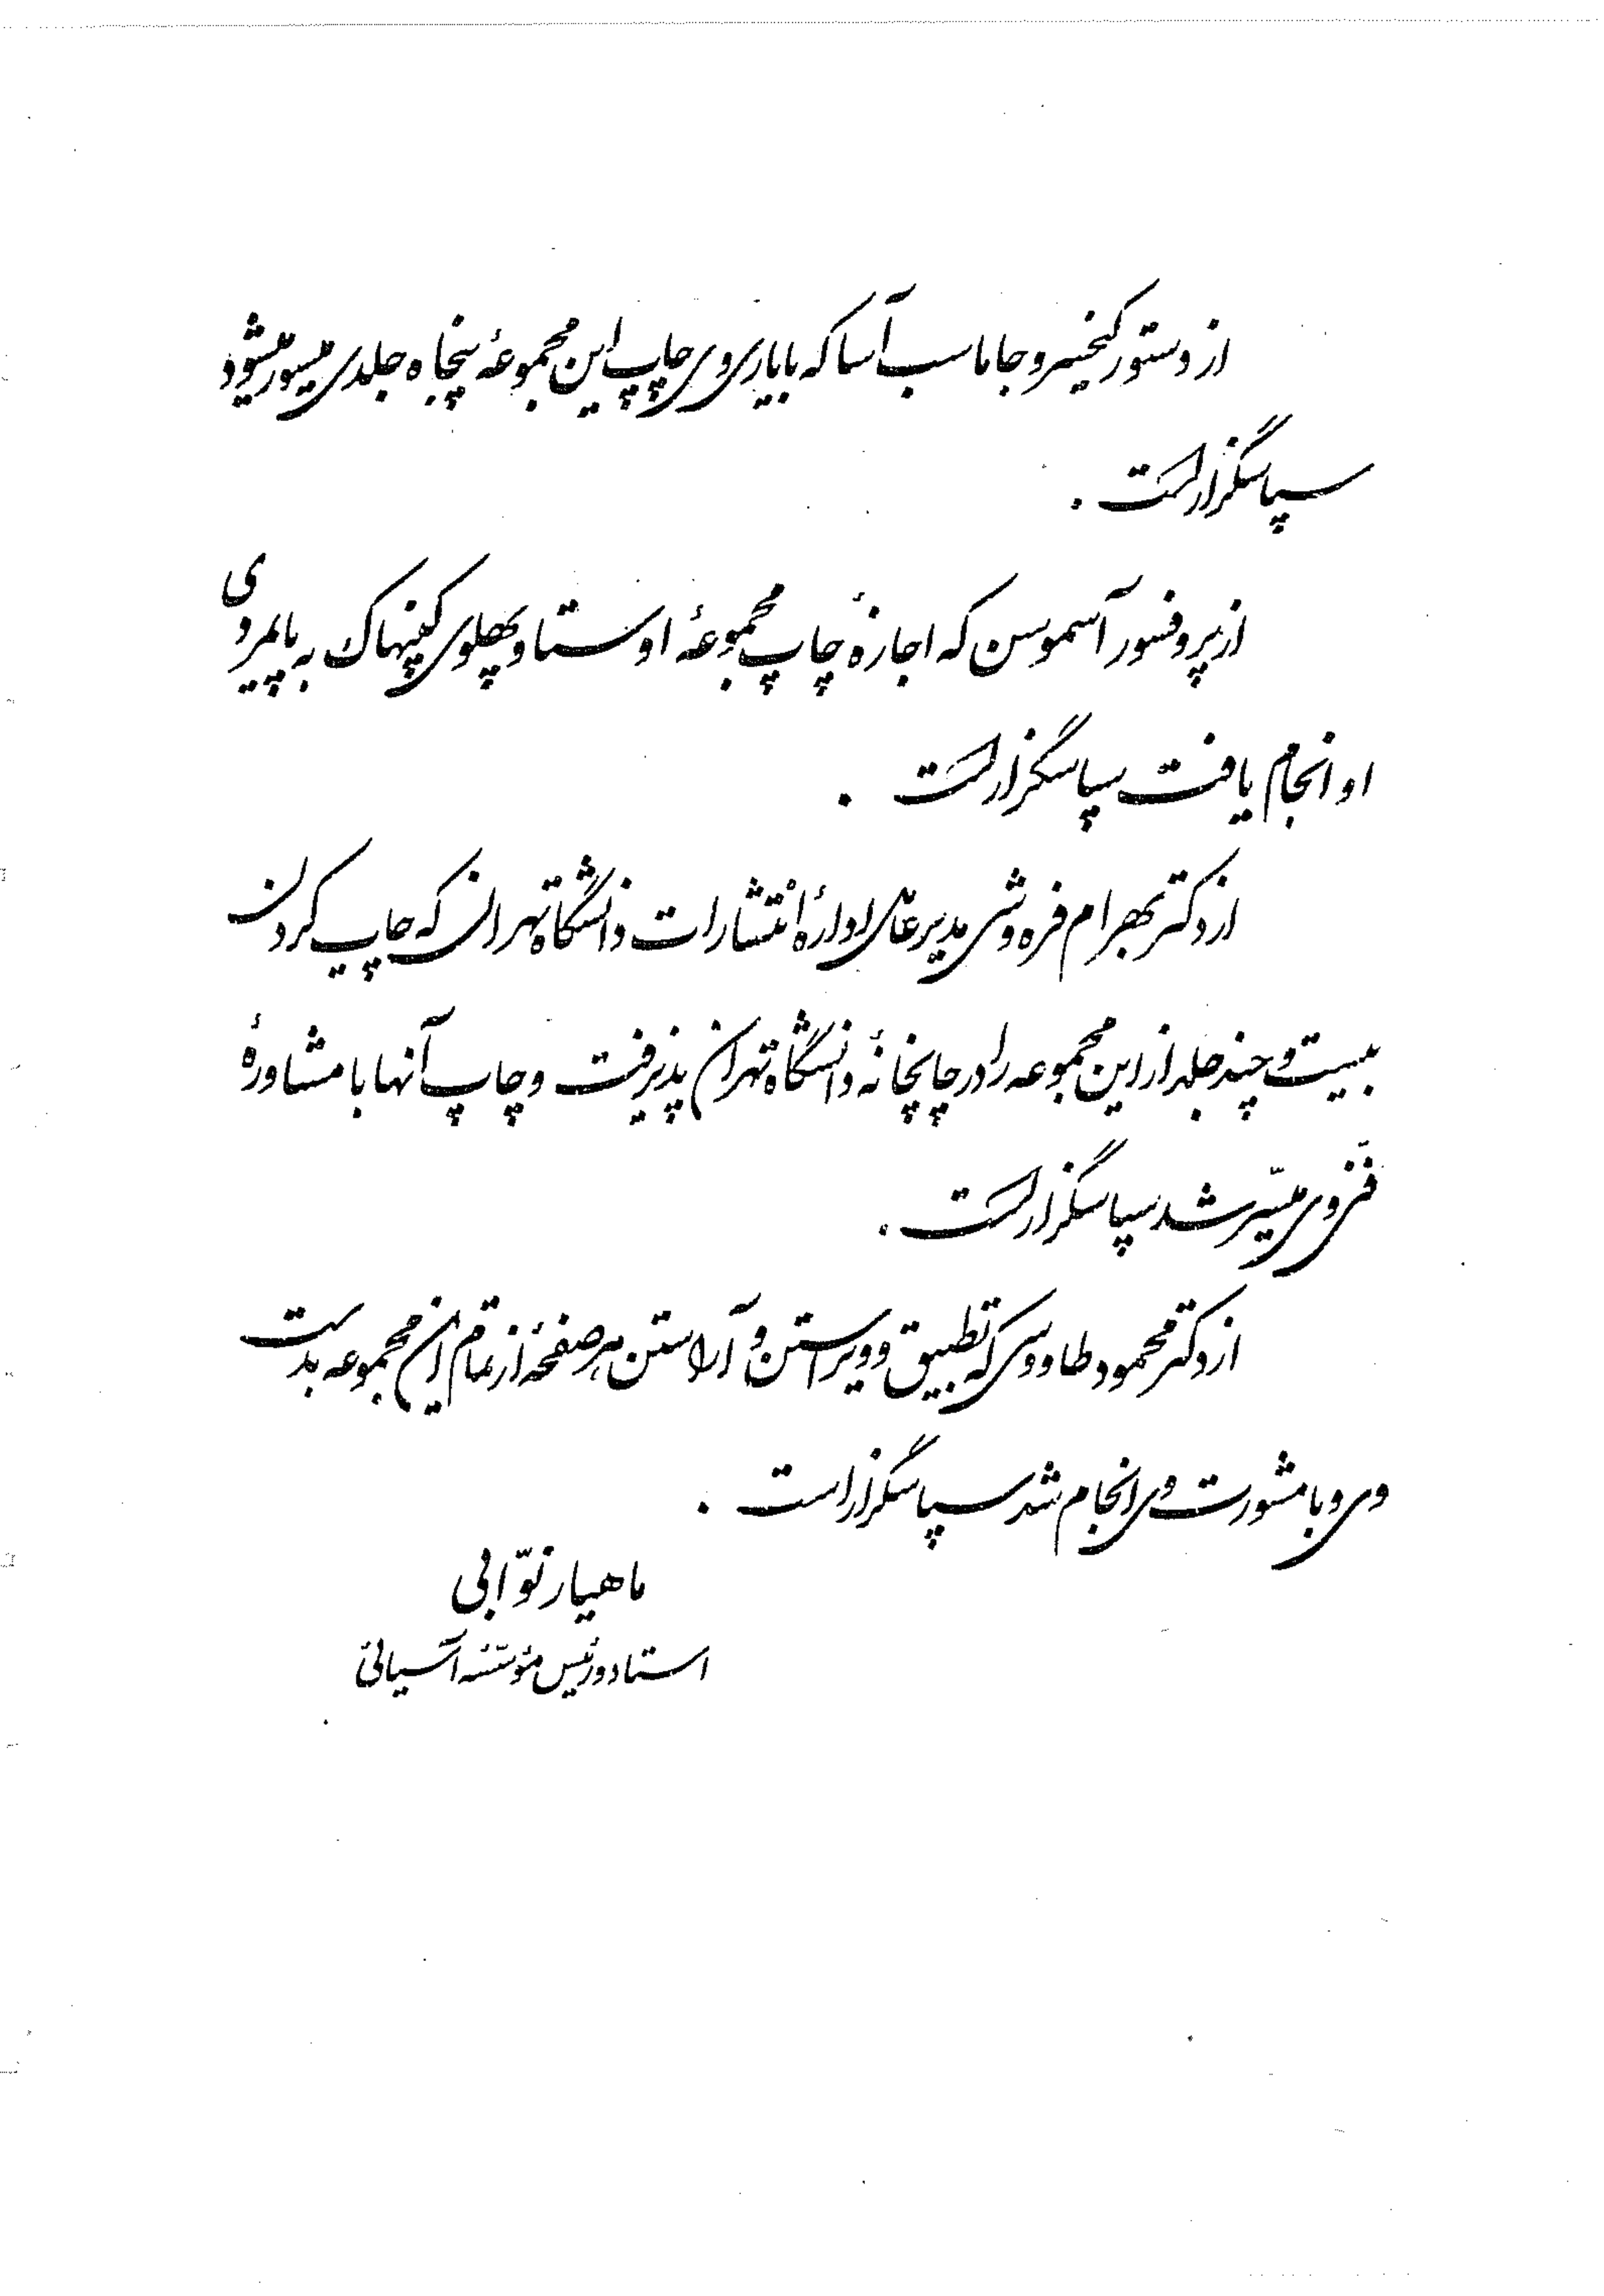 از دستور کیخسرو جاماسب آسا که با یاری وی چاپ این مجموعهٔ پنجاه جلدی میسور میشود
سپاسگزار است .
از پروفسور آسموسن که اجازهٔ چاپ مجموعهٔ اوستا و پهلوی کپنهاک به پایمردی
او انجام یافت سپاسگزار است .
از دکتر بهرام فره‌وشی مدیر عامل ادارهٔ انتشارات دانشگاه تهران که چاپ کردن
بیست و چند جلد از این مجموعه را در چاپخانهٔ دانشگاه تهران پذیرفت و چاپ آنها با مشاورهٔ
فنّی وی میسّر شد سپاسگزار است .
از دکتر محمود طاووسی که تطبیق و ویراستن و آراستن هر صفحهٔ از تمام این مجموعه بدست
وی و با مشورت وی انجام شد سپاسگزار است .
ماهیار نوّابی
استاد و رئیس مؤسّسه آسیائی